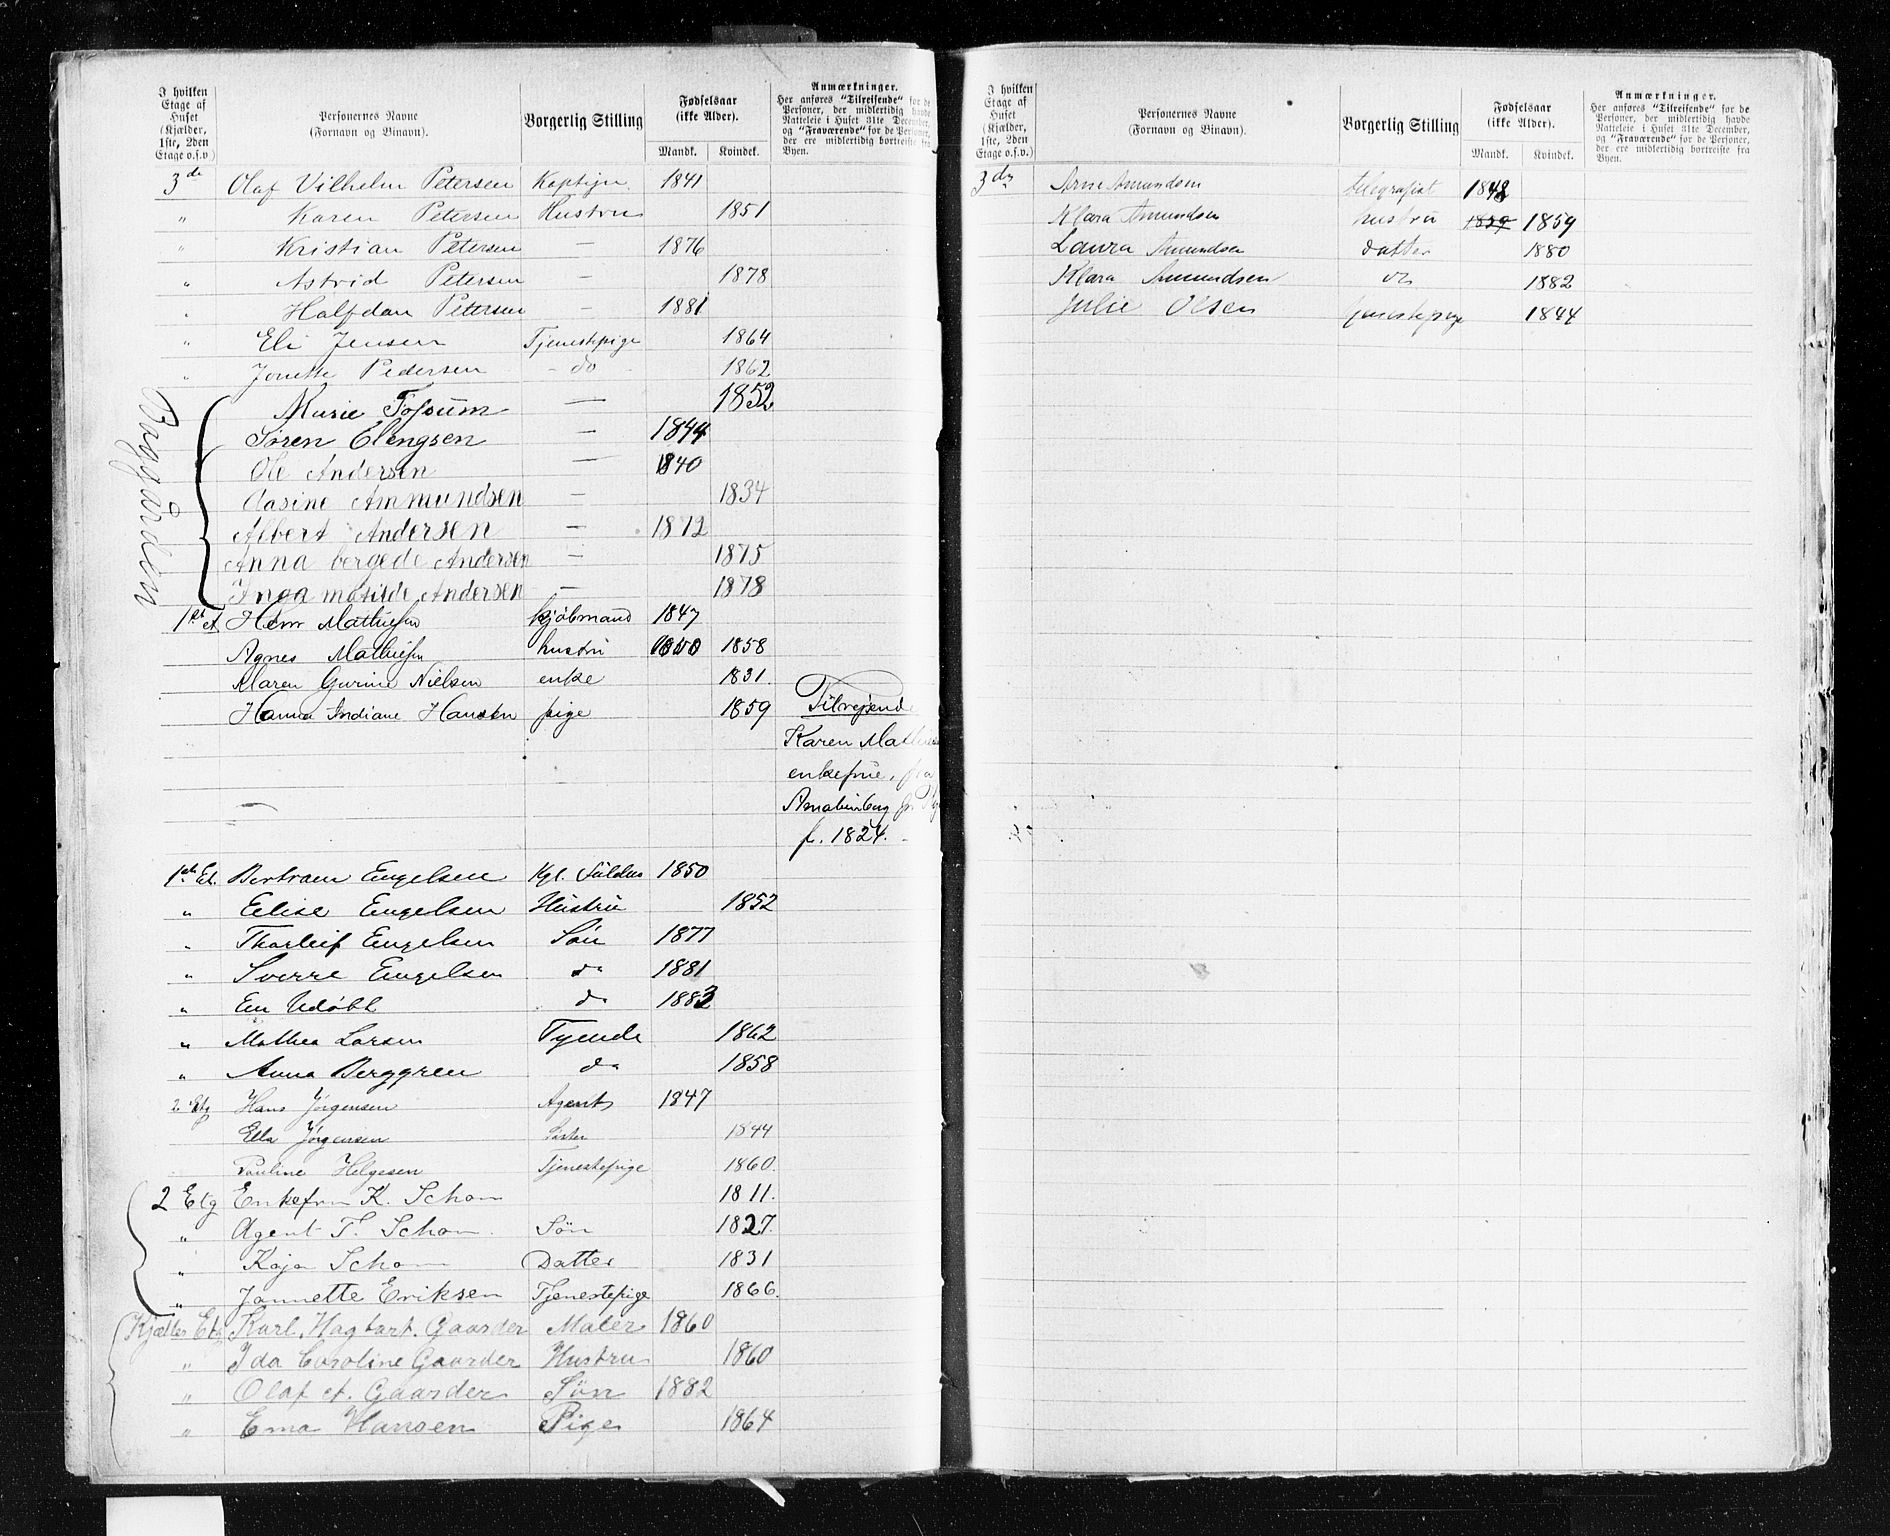 I hvilken Etage af Huset (Kjælder, 1ste, 2den Etage o.s.v)
Personernes Navne (Fornavn og Binavn).
Borgerlig Stilling
Fødselsaar (ikke Alder).
Mandk. Kvindek.
Anmærkninger.
Her anføres "Tilreisende" for de Personer, der midlertidig havde Natteleie i Huset 31te December, og "Fraværende" for de Personer, der ere midlertidig bortreiste fra Byen.
3de Olaf Vilhelm Petersen Kaptejn 1841
" Karen Petersen Hustru 1851
" Kristian Petersen — 1876
" Astrid Petersen — 1878
" Halfdan Petersen — 1881
" Eli Jensen Tjenestepige 1864
" Jonette Pedersen - do - 1862
Baggården
Marie Fossum — 1852
Søren Elengsen — 1844
Ole Andersen — 1840
Aasine Ammundsen — 1834
Albert Andersen — 1872
Anna bergede Andersen — 1875
Inga matilde Andersen — 1878
1st et Herm Mathiesen kjøbmand 1847
Agnes Mathiesen hustru 1858
Maren Gurine Nielsen enke 1831.
Hanna Indiane Hansen pige 1859
Tilrejsende
Karen Math
enkefrue, fra
f. 1824.
1ste Et. Bertram Engelsen Kgl. 1850
" Elise Engelsen Hustru 1852
" Thorleif Engelsen Søn 1877
" Sverre Engelsen do 1881
" En Udøbt do 1883
" Mathea Larsen Tyende 1862
" Anna Berggren do 1858
2 Etg Hans Jørgensen Agent 1847
Ella Jørgensen Søster 1844
Pauline Helgesen Tjenestepige 1860.
2 Etg Enkefru K. Schou 1811.
" Agent T. Schou. Søn 1827.
" Kaja Schou Datter 1831
" Jannette Eriksen Tjenestepige 1866.
Kjælder Etg Karl Hagbart Gaarder Maler 1860
" Ida Caroline Gaarder Hustru 1860
" Olaf A. Gaarder Søn 1882
" Ema Hansen Pige 1864
I hvilken Etage af Huset (Kjælder, 1ste, 2den Etage o.s.v.)
Personernes Navne (Fornavn og Binavn).
Borgerlig Stilling
Fødselsaar (ikke Alder).
Mandk. Kvindek.
Anmærkninger.
Her anføres "Tilreisende" for de Personer, der midlertidig havde Natteleie i Huset 31te December, og "Fraværende" for de Personer, der ere midlertidig bortreiste fra Byen.
3de Arne Amundsen telegrafist 1848
Klara Amundsen hustru 1859 1859
Laura Amundsen datter 1880
Klara Amundsen do 1882
Julie Olsen tjenestepige 1844